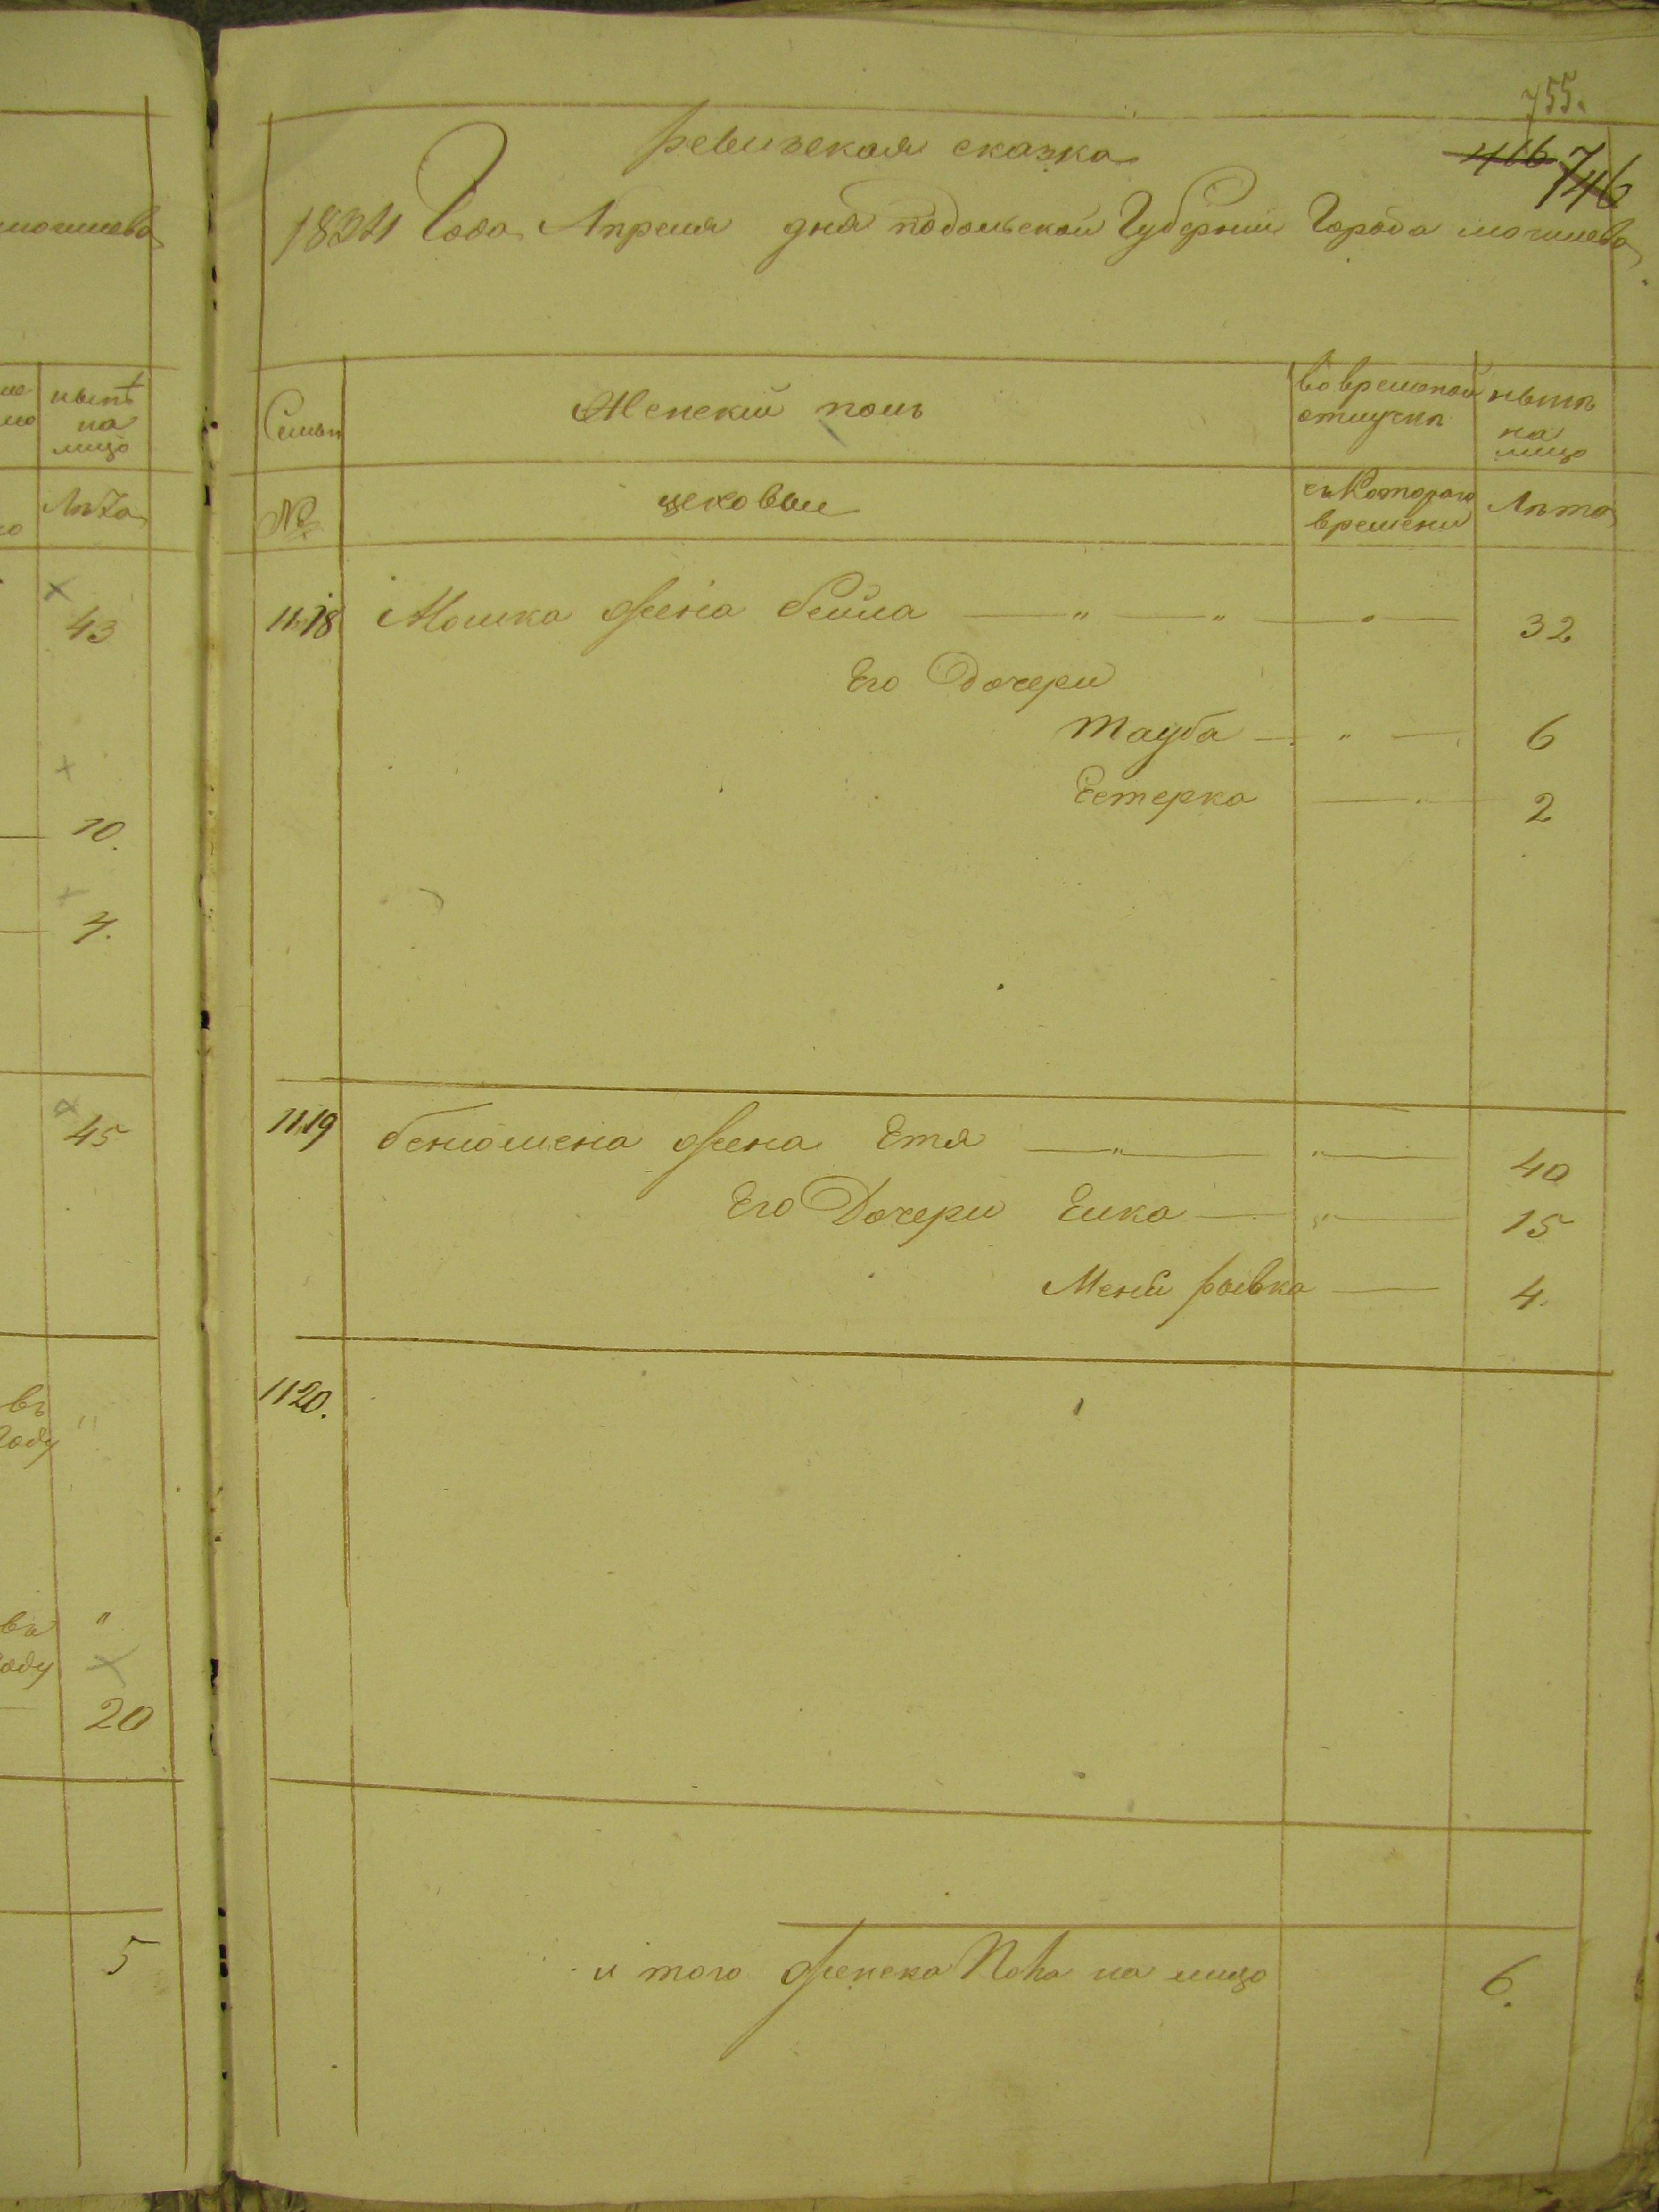 755.
416 746
Ревизская сказка
1834 Года Апреля дня подольской Губернии Города могилева
могилева
Семьи
Женский полъ
во временной отлучкѣ
нынѣ на лицо
нынѣ
на
лицо
№
цеховыи
съ Котораго времени
Лѣта
Лѣта
1118 Мошка жена бейла — " — " — " — 32
43
Его Дочери
Тауба — " — 6
Естерка — " — 2
10.
4.
1119 бенюмена жена Етя — " — " — 40
45
Его Дочери Елка — " — 15
Мени рывка — 4.
1120.
въ
Году "
въ "
Году
20
5
и того женска пола на лицо 6.